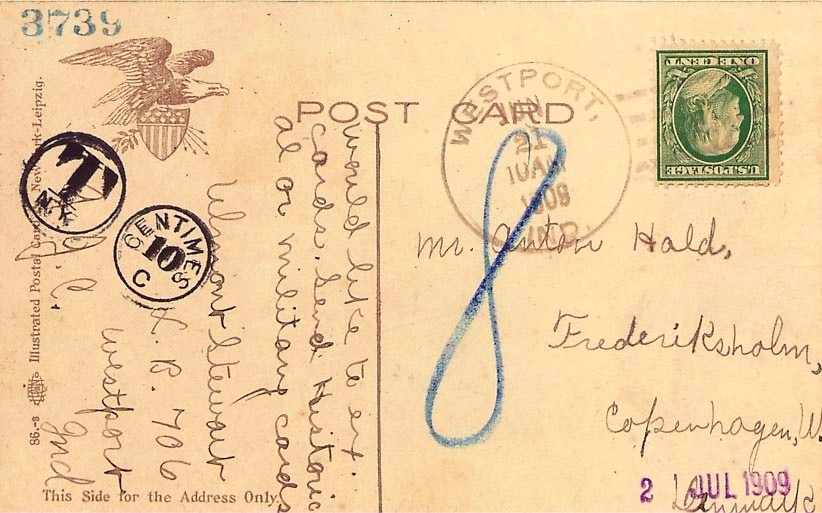 3739
POST CARD
WESTPORT,
JUN
21
10AM
1909
IND.
ONE CENT
U.S. POSTAGE
T
N.Y.
CENTIMES
10
C
8
Would like to ex.
cards. Send Historic
al or military cards
Ulmont Stewart
L. B. 706
Westport
Ind
Mr. Anton Hald,
Frederiksholm,
Copenhagen, W.
Denmark
2 JUL 1909
86.-8 Illustrated Postal Card New York-Leipzig.
This Side for the Address Only.